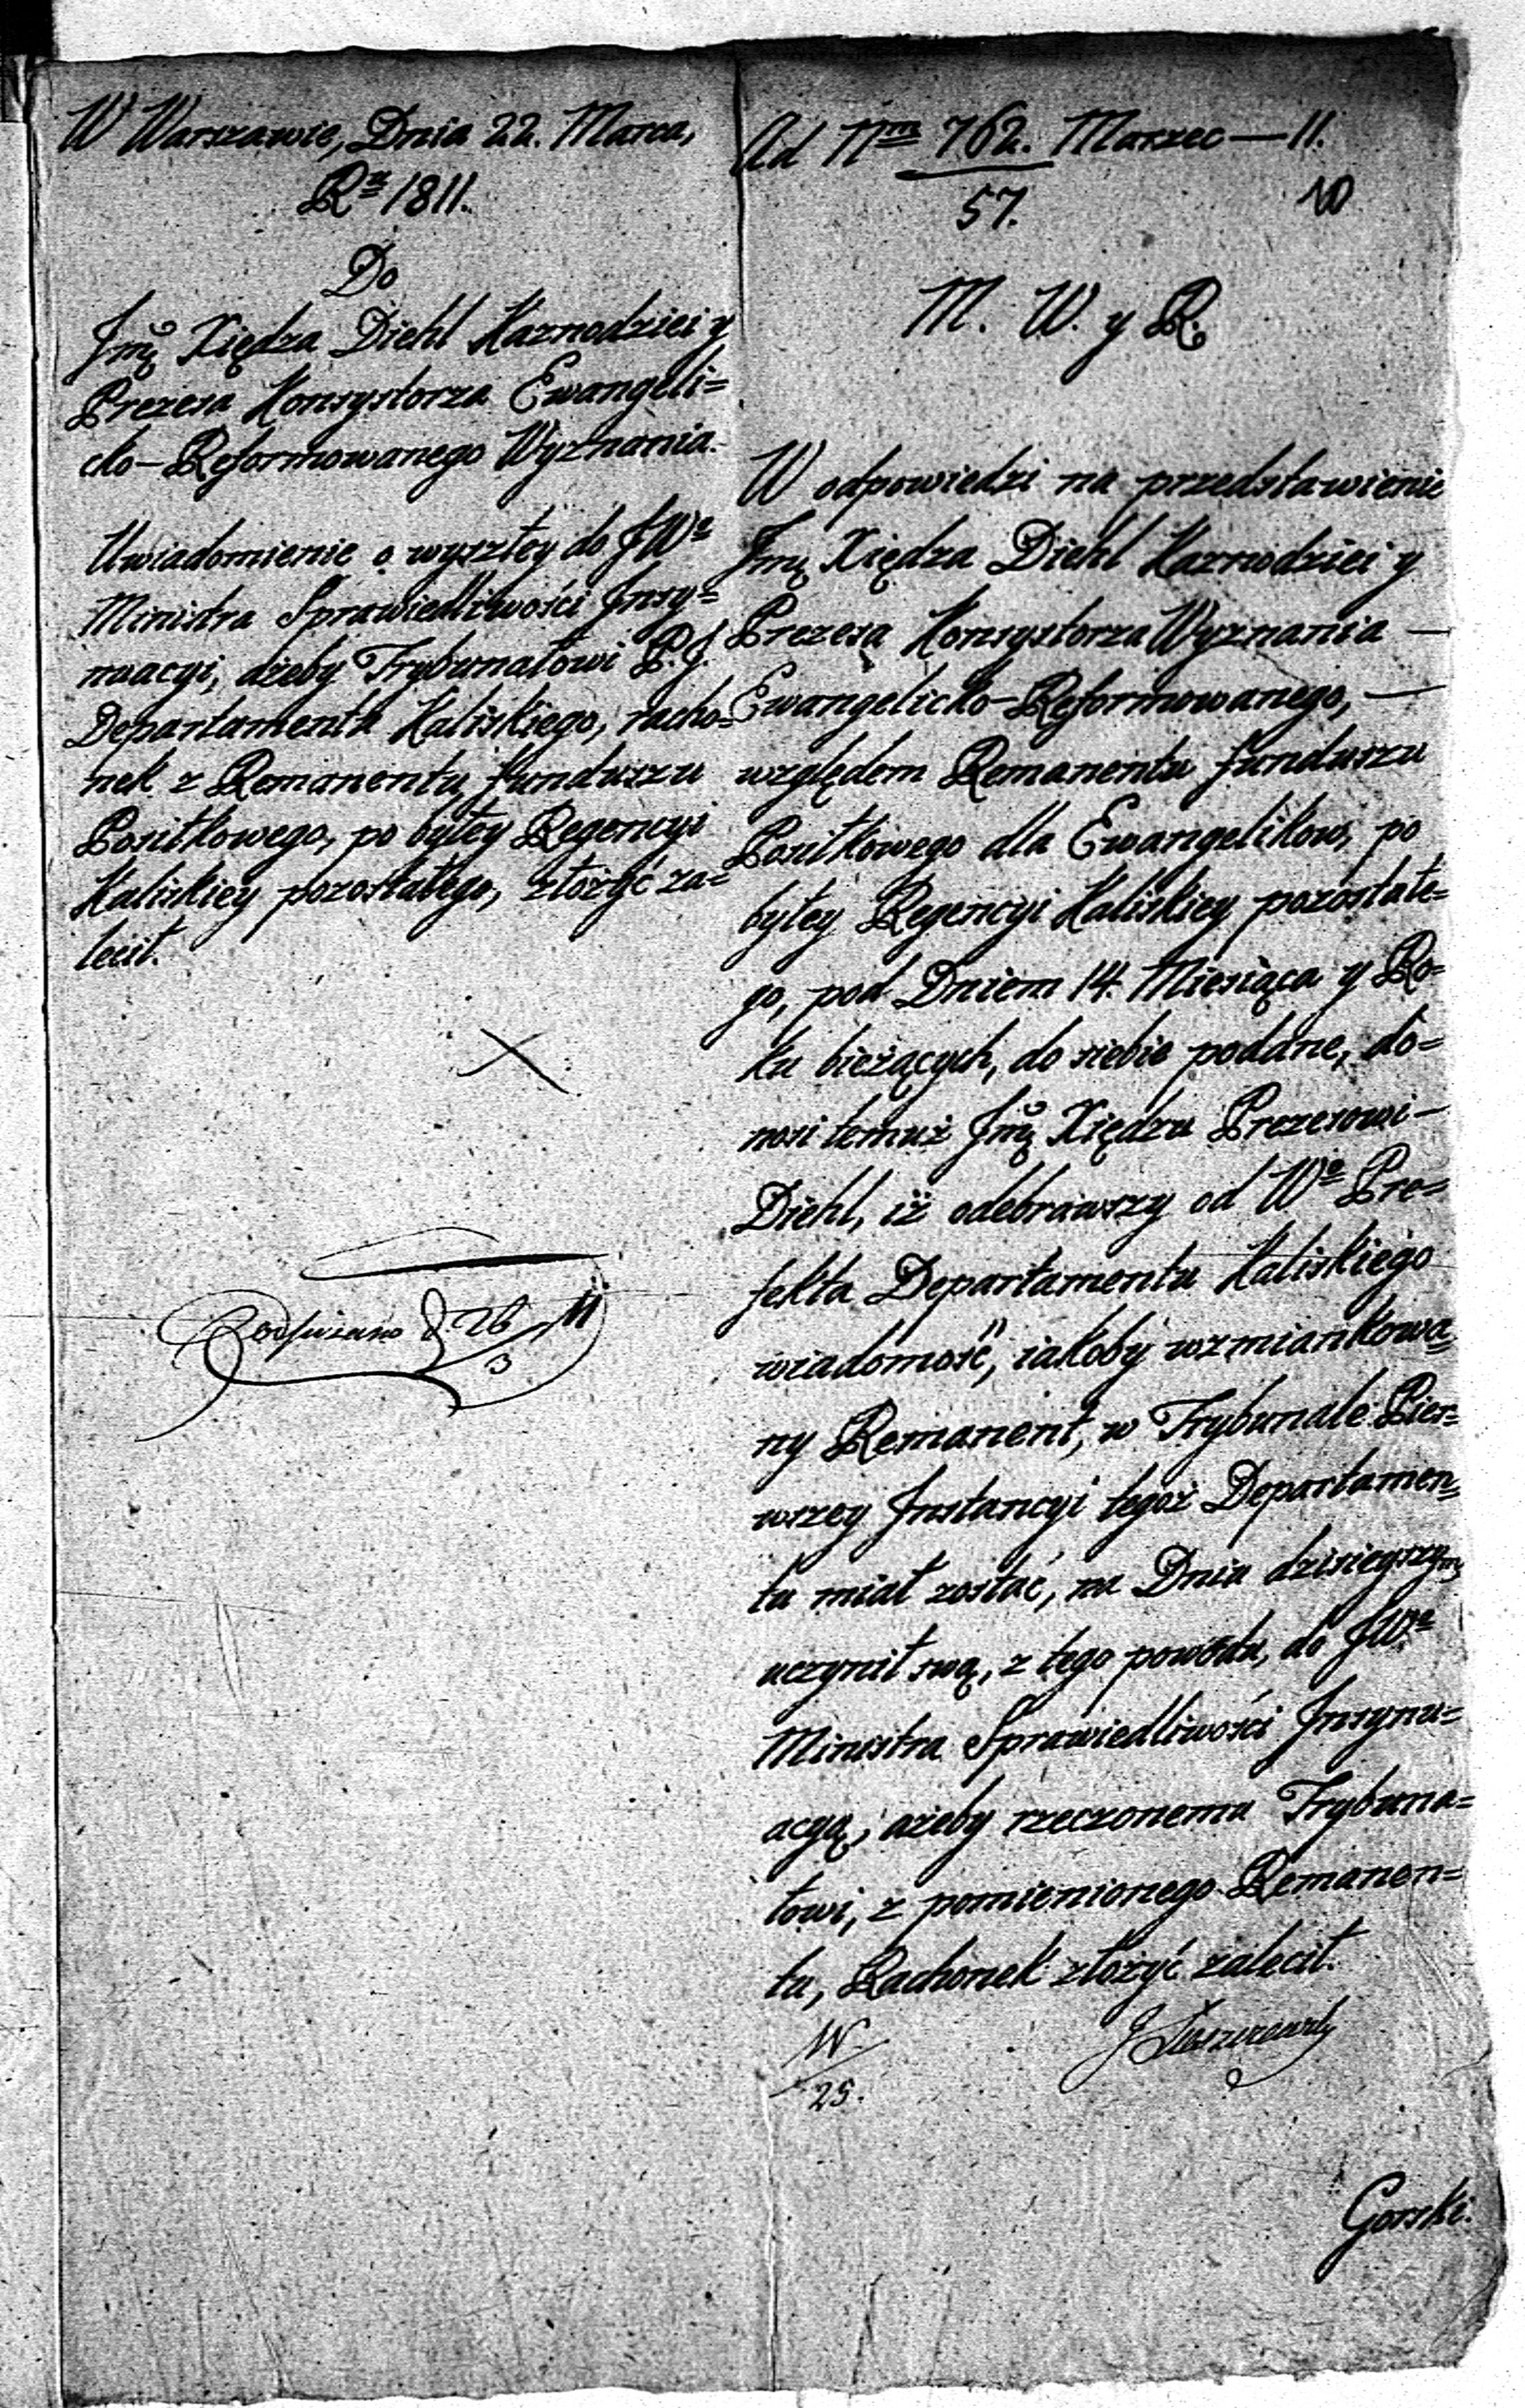 W Warszawie, Dnia 22. Marca,
Rᵘ 1811.
Do
Jmć Xiędza Diehl Kaznodziei y
Prezesa Konsystorza Ewangeli=
cko-Reformowanego Wyznania.
Uwiadomienie o wyszłey do JWº
Ministra Sprawiedliwości Insy=
nuacyi, ażeby Trybunałowi P. I.
Departamentu Kaliskiego, racho=
nek z Remanentu funduszu
Posiłkowego, po byłey Regencyi
Kaliskiey pozostałego, złożyć za=
lecił.
26/3 11
Ad Nᵐ 762. Marzec — 11.
57.
10
M. W. y R.
W odpowiedzi na przedstawienie
Jmć Xiędza Diehl Kaznodziei y
Prezesa Konsystorza Wyznania —
Ewangelicko-Reformowanego, —
względem Remanentu funduszu
Posiłkowego dla Ewangelikow, po
byłey Regencyi Kaliskiey pozostałe=
go, pod Dniem 14. Miesiąca y Ro=
ku bieżących, do siebie podane, do=
nosi temuż Jmć Xiędzu Prezesowi —
Diehl, iż odebrawszy od Wº Pre=
fekta Departamentu Kaliskiego
wiadomość, iakoby wzmiankowa=
ny Remanent, w Trybunale Pier=
wszey Instancyi tegoż Departamen=
tu miał zostać, na Dniu dzisieyszym
uczynił swą, z tego powodu, do JWº
Ministra Sprawiedliwości Insynu=
acyą, ażeby rzeczonemu Trybuna=
łowi, z pomienionego Remanen=
tu, Rachonek złożyć zalecił.
W.
25.
Gorski.